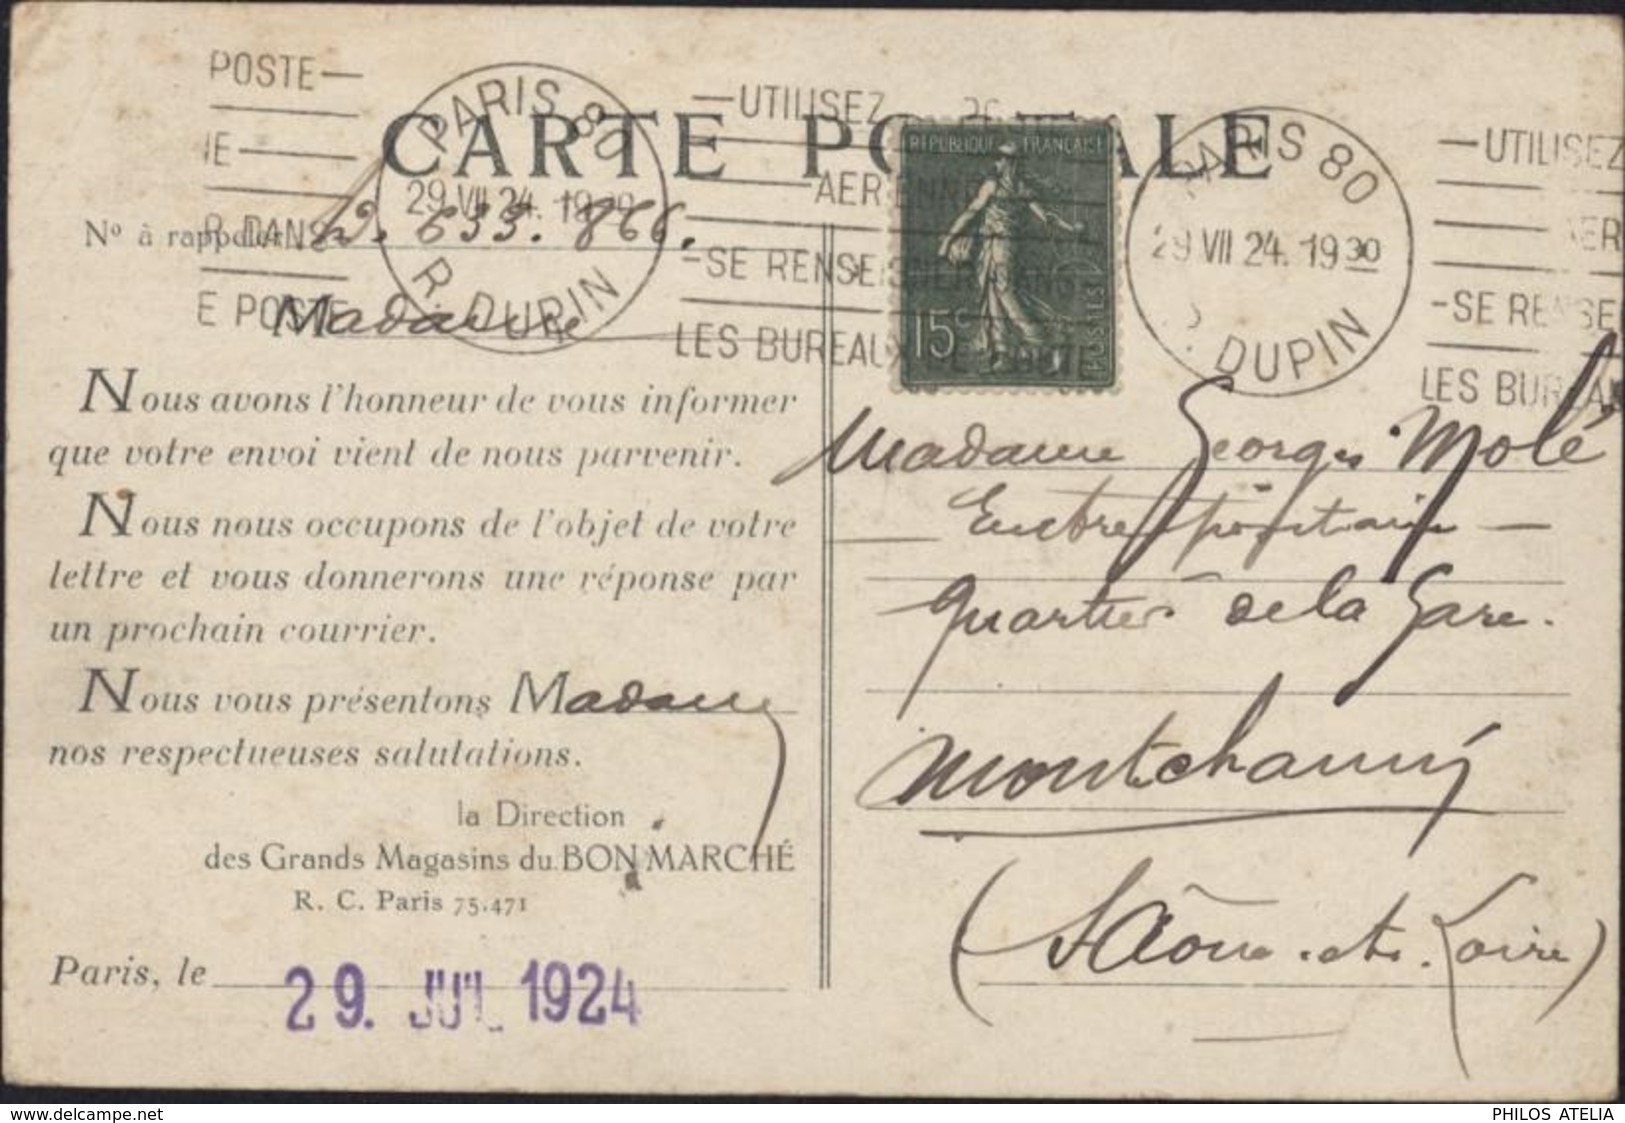 CARTE POSTALE
POSTE
PARIS 80
29 VII 24. 19
R. DUPIN
R DANS
E POSTE
-UTILISEZ
AERIENNE
-SE RENSEIGNER DANS
LES BUREAUX DE POSTE
REPUBLIQUE FRANÇAISE
15c
POSTES
PARIS 80
29 VII 24. 1930
DUPIN
-UTILISEZ
AER
-SE RENSE
LES BUREAU
No à rappeler 633.866.
Madame
Nous avons l'honneur de vous informer
que votre envoi vient de nous parvenir.
Nous nous occupons de l'objet de votre
lettre et vous donnerons une réponse par
un prochain courrier.
Nous vous présentons Madame
nos respectueuses salutations.
la Direction
des Grands Magasins du BON MARCHÉ
R. C. Paris 75.471
Paris, le 29. JUIL 1924
Madame Georges Molé
Quartier de la Gare.
Montchanin
(Saône-et-Loire)
www.delcampe.net
PHILOS ATELIA